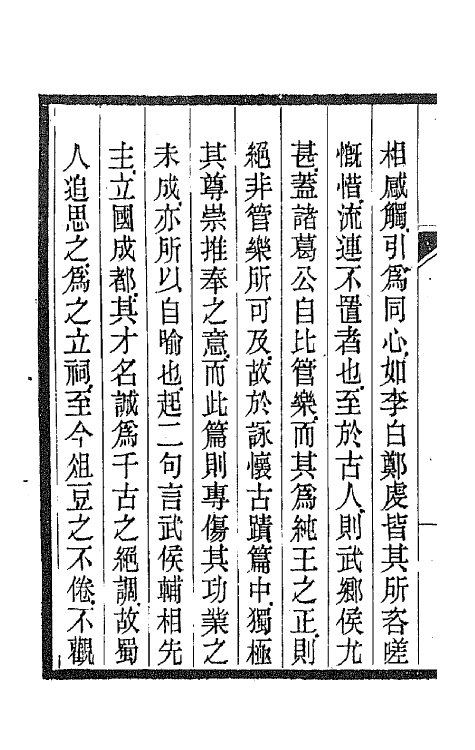 相感觸引爲同心如李白鄭虔皆其所咨嗟
慨惜流連不置者也至於古人則武鄉侯尤
甚蓋諸葛公自比管樂而其爲純王之正則
絕非管樂所可及故於詠懷古蹟篇中獨極
其尊崇推奉之意而此篇則專傷其功業之
未成亦所以自喻也起二句言武侯輔相先
主立國成都其才名誠爲千古之絕調故蜀
人追思之爲之立祠至今俎豆之不倦不觀